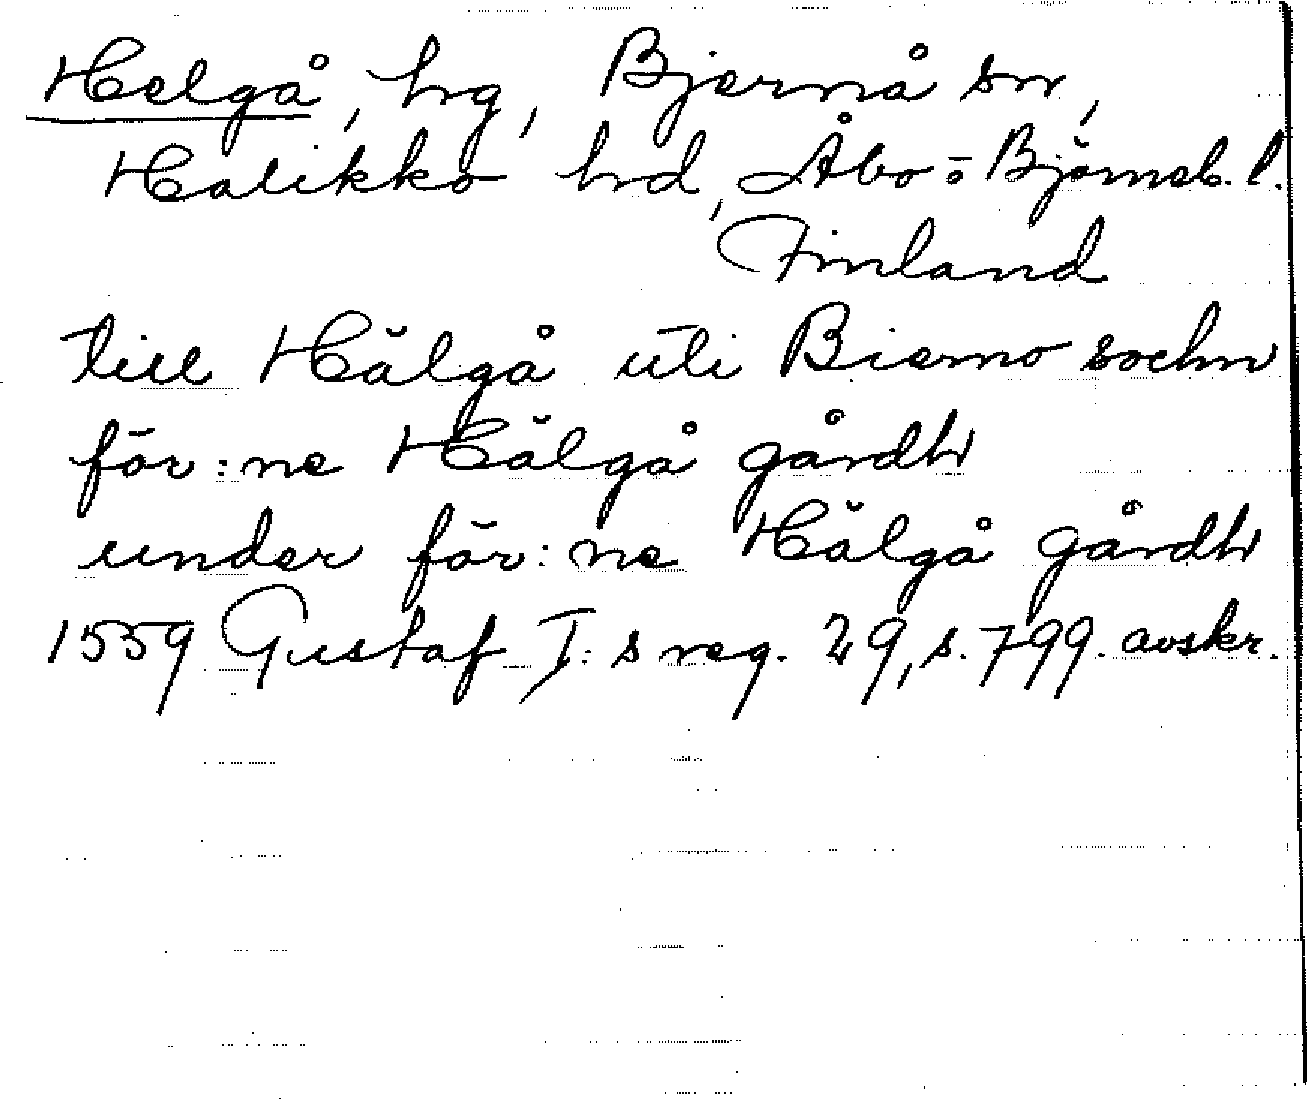 Helgå, hrg, Bjernå sn,
Halikko hrd, Åbo o Björneb. l.
Finland
till Hälgå uti Bierno sochn
för:ne Hälgå gårdh
under för:ne Hälgå gårdh
1559 Gustaf I:s reg. 29, s. 799. avskr.